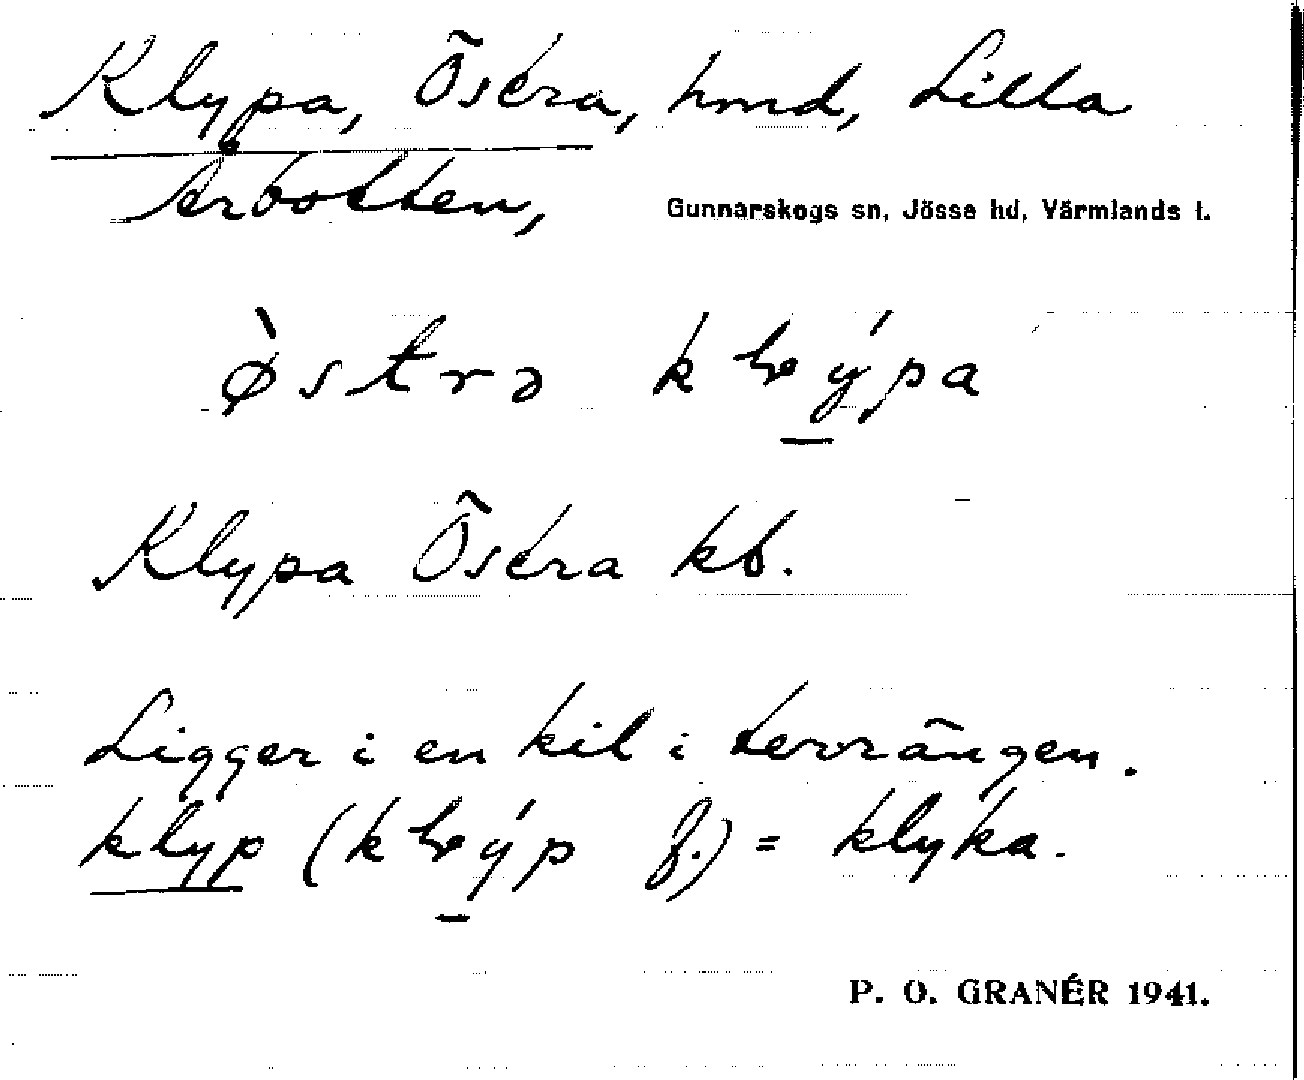 Klypa, Östra, hmd, Lilla
Årbotten, Gunnarskogs sn, Jösse hd, Värmlands l.
østrə kɽýpa
Klypa Östra kb.
Ligger i en kil i terrängen.
klyp (kɽýp f.) = klyka.
P. O. GRANÉR 1941.